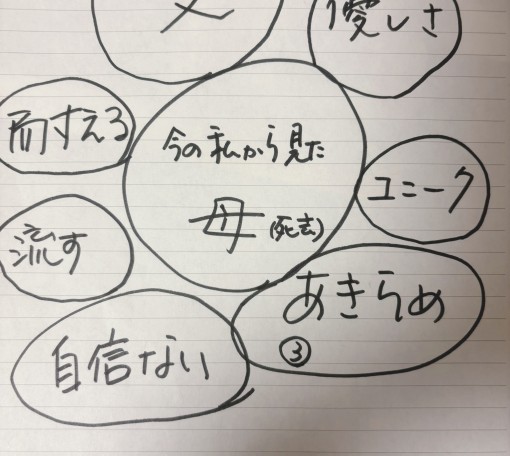 優しさ
耐える
今の私から見た
母(死去)
ユニーク
流す
あきらめ
③
自信ない